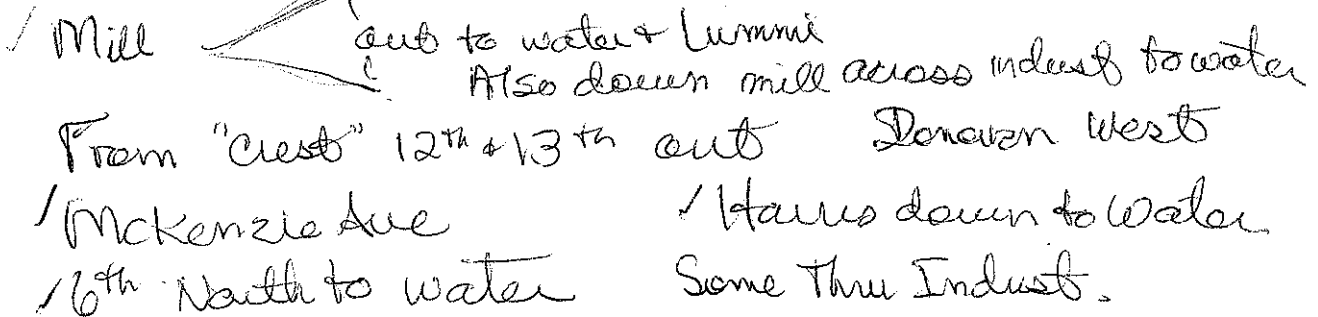 ✓ Mill out to water & Lummi
Also down mill across indust to water
From "Crest" 12th & 13th out Donovan West
✓ McKenzie Ave ✓ Harris down to Water
✓ 6th North to water Some Thru Indust.